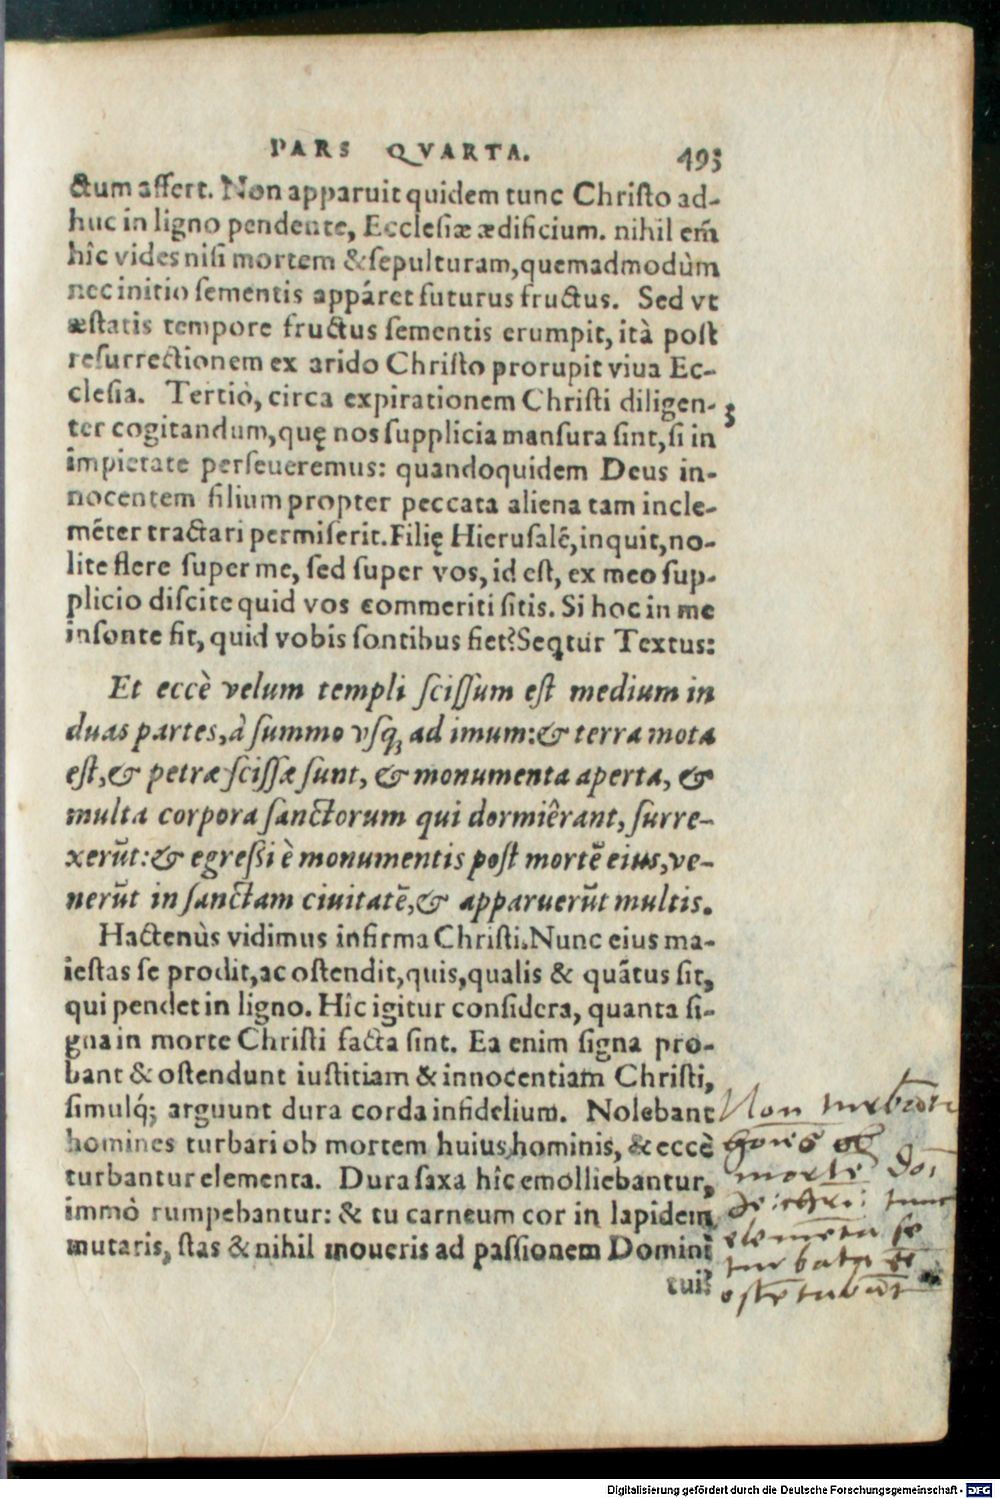 PARS QVARTA. 493
ctum affert. Non apparuit quidem tunc Christo ad-
huc in ligno pendente, Ecclesiæ ædificium. nihil em̃
hîc vides nisi mortem & sepulturam, quemadmodùm
nec initio sementis appáret futurus fructus. Sed vt
æstatis tempore fructus sementis erumpit, ità post
resurrectionem ex arido Christo prorupit viua Ec-
clesia. Tertiò, circa expirationem Christi diligen- 3
ter cogitandum, quę nos supplicia mansura sint, si in
impietate perseueremus: quandoquidem Deus in-
nocentem filium propter peccata aliena tam incle-
mēter tractari permiserit. Filię Hierusalē, inquit, no-
lite flere super me, sed super vos, id est, ex meo sup-
plicio discite quid vos commeriti sitis. Si hoc in me
insonte fit, quid vobis sontibus fiet? Seq̃tur Textus:
Et eccè velum templi scissum est medium in
duas partes, à summo vsq; ad imum: & terra mota
est, & petræ scissæ sunt, & monumenta aperta, &
multa corpora sanctorum qui dormiêrant, surre-
xerũt: & egressi è monumentis post mortē eius, ve-
nerũt in sanctam ciuitatē, & apparuerũt multis.
Hactenùs vidimus infirma Christi. Nunc eius ma-
iestas se prodit, ac ostendit, quis, qualis & quātus sit,
qui pendet in ligno. Hîc igitur considera, quanta si-
gna in morte Christi facta sint. Ea enim signa pro-
bant & ostendunt iustitiam & innocentiam Christi,
simulq́; arguunt dura corda infidelium. Nolebant
homines turbari ob mortem huius hominis, & eccè
turbantur elementa. Dura saxa hîc emolliebantur,
immò rumpebantur: & tu carneum cor in lapidem
mutaris, stas & nihil moueris ad passionem Domini
tui?
Non
ob
mortē
tunc
elemēta se
turbata
Digitalisierung gefördert durch die Deutsche Forschungsgemeinschaft - DFG